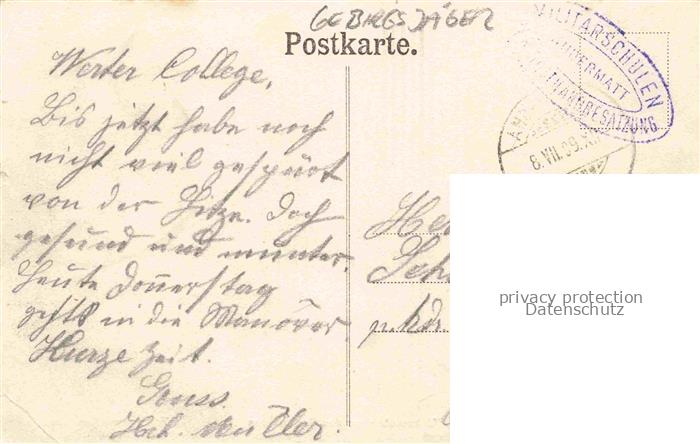 GEBIRGSJÄGER
Postkarte.
MILITÄRSCHULEN
ANDERMATT
GOTTHARDBESATZUNG
8.VII.09.
Werter College,
Bis jetzt habe noch
nicht viel gespürt
von der Hitze. Doch
gesund und munter.
Heute Donnerstag
geht's in die Manöver
Kurze Zeit.
Gruss.
Hch.
p. Adr.
privacy protection
Datenschutz